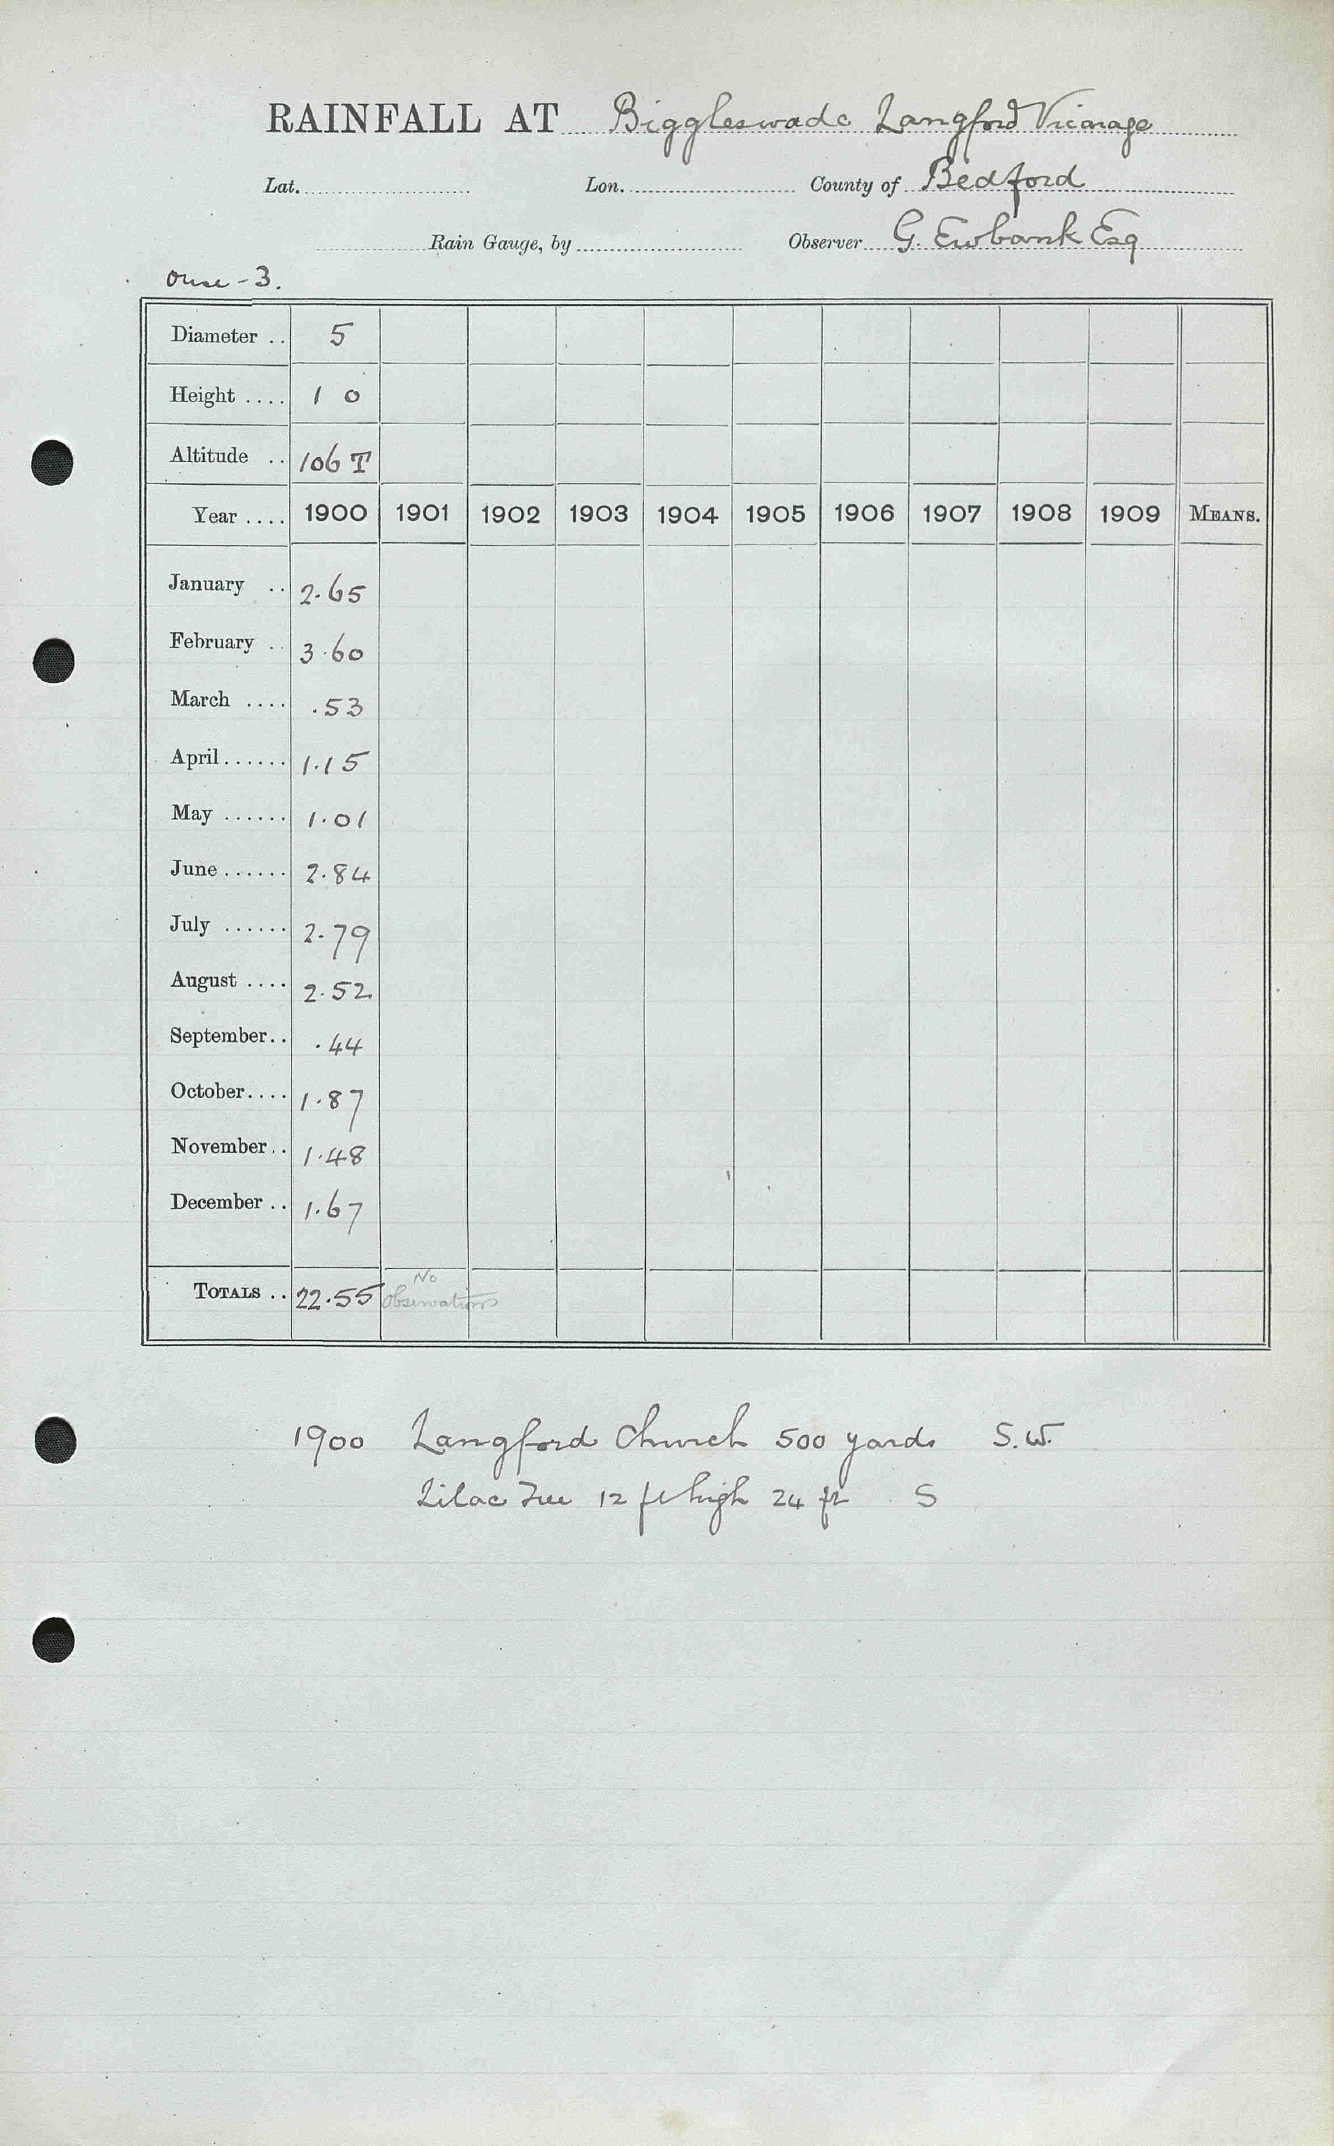 RAINFALL AT Biggleswade Langford Vicarage
Lat. Lon. County of Bedford
Rain Gauge, by Observer G. Ewbank Esq
Ouse - 3.
Diameter .. 5
Height .... 1 0
Altitude .. 106 T
Year .... 1900 1901 1902 1903 1904 1905 1906 1907 1908 1909 MEANS.
January .. 2.65
February .. 3.60
March .... .53
April ...... 1.15
May ...... 1.01
June ...... 2.84
July ...... 2.79
August .... 2.52
September .. .44
October .... 1.87
November .. 1.48
December .. 1.67
TOTALS .. 22.55 No observations
1900 Langford Church 500 yards S.W.
Lilac Tree 12 ft high 24 ft S